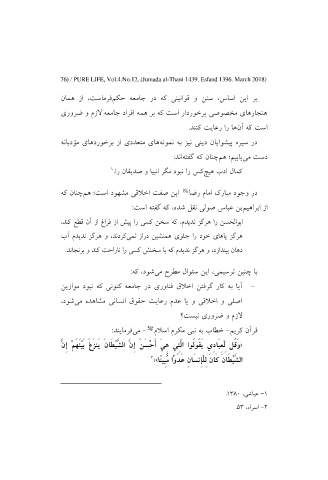 76) / PURE LIFE, Vol.4.No.12, (Jumada al-Thani 1439. Esfand 1396. March 2018)
بر این اساس، سنن و قوانینی که در جامعه حکم‌فرماست، از همان
هنجارهای مخصوصی برخوردار است که بر همه افراد جامعه لازم و ضروری
است که آن‌ها را رعایت کنند.
در سیره پیشوایان دینی نیز به نمونه‌های متعددی از برخوردهای مؤدبانه
دست می‌یابیم؛ هم‌چنان که گفته‌اند:
کمال ادب هیچ‌کس را نبود مگر انبیا و صدیقان را.۱
در وجود مبارک امام رضا این صفت اخلاقی مشهود است؛ هم‌چنان که
از ابراهیم‌بن عباس صولی نقل شده، که گفته است:
ابوالحسن را هرگز ندیدم، که سخن کسی را پیش از فراغ از آن قطع کند،
هرگز پاهای خود را جلوی همنشین دراز نمی‌کردند، و هرگز ندیدم آب
دهان بیندازد، و هرگز ندیدم که با سخنش کسی را ناراحت کند و برنجاند.
با چنین ترسیمی، این سئوال مطرح می‌شود، که:
- آیا به کار گرفتن اخلاق فناوری در جامعه کنونی که نبود موازین
اصلی و اخلاقی و یا عدم رعایت حقوق انسانی مشاهده می‌شود،
لازم و ضروری نیست؟
قرآن کریم- خطاب به نبی مکرم اسلام - می‌فرمایند:
﴿وَقُل لِّعِبَادِي يَقُولُوا الَّتِي هِيَ أَحْسَنُ إِنَّ الشَّيْطَانَ يَنزَغُ بَيْنَهُمْ إِنَّ
الشَّيْطَانَ كَانَ لِلْإِنسَانِ عَدُوًّا مُّبِينًا﴾۲
۱- عیاشی، ۱۳۸۰.
۲- اسراء، ۵۳.